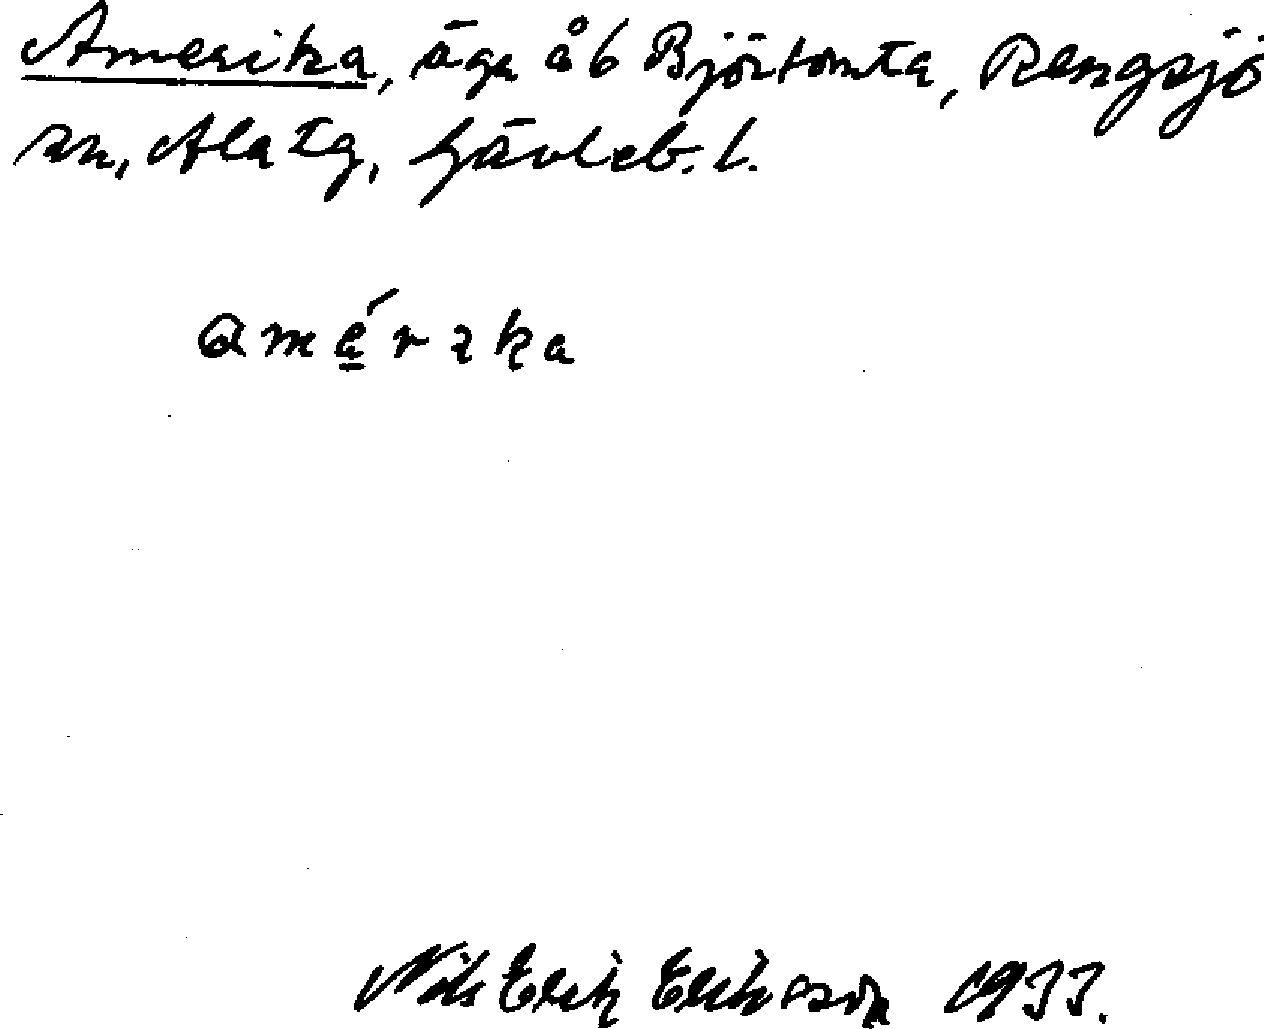 Amerika, äga å 6 Björtomta, Rengsjö
sn, Ala tg, Gävleb. l.
amérɩka
Nils Erik Erikson 1933.